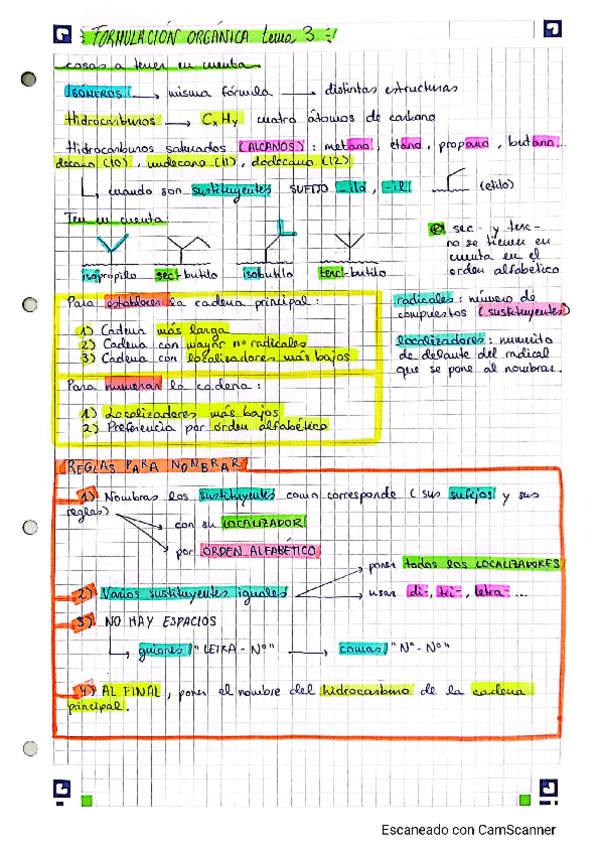 FORMULACIÓN ORGÁNICA tema 3
cosas a tener en cuenta
ISÓMEROS → misma fórmula → distintas estructuras
Hidrocarburos → CxHy cuatro átomos de carbono
Hidrocarburos saturados (ALCANOS): metano, etano, propano, butano...
decano (10), undecano (11), dodecano (12)
cuando son sustituyentes SUFIJO -ilo, -il (etilo)
Ten en cuenta:
isopropilo sect-butilo isobutilo terc-butilo
sec- y terc-
no se tienen en
cuenta en el
orden alfabético
Para establecer la cadena principal:
1) Cadena más larga
2) Cadena con mayor nº radicales
3) Cadena con localizadores más bajos
Para numerar la cadena:
1) Localizadores más bajos
2) Preferencia por orden alfabético
radicales: número de
compuestos (sustituyentes)
localizadores: numerito
de delante del radical
que se pone al nombrar.
REGLAS PARA NOMBRAR
1) Nombras los sustituyentes como corresponde (sus sufijos y sus
reglas)
con su LOCALIZADOR
por ORDEN ALFABÉTICO
2) Varios sustituyentes iguales
poner todos los LOCALIZADORES
usar di-, tri-, tetra-...
3) NO HAY ESPACIOS
guiones "LETRA - Nº" → comas "Nº - Nº"
4) AL FINAL, poner el nombre del hidrocarburo de la cadena
principal.
Escaneado con CamScanner